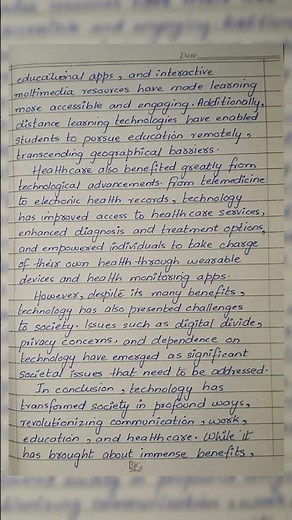 Date
educational apps, and interactive
multimedia resources have made learning
more accessible and engaging. Additionally,
distance learning technologies have enabled
students to pursue education remotely,
transcending geographical barriers.
Healthcare also benefited greatly from
technological advancements. From telemedicine
to electronic health records, technology
has improved access to health care services,
enhanced diagnosis and treatment options,
and empowered individuals to take charge
of their own health through wearable
devices and health monitoring apps.
However, despite its many benefits,
technology has also presented challenges
to society. Issues such as digital divide,
privacy concerns, and dependence on
technology have emerged as significant
societal issues that need to be addressed.
In conclusion, technology has
transformed society in profound ways,
revolutionizing communication, work,
education, and healthcare. While it
has brought about immense benefits,